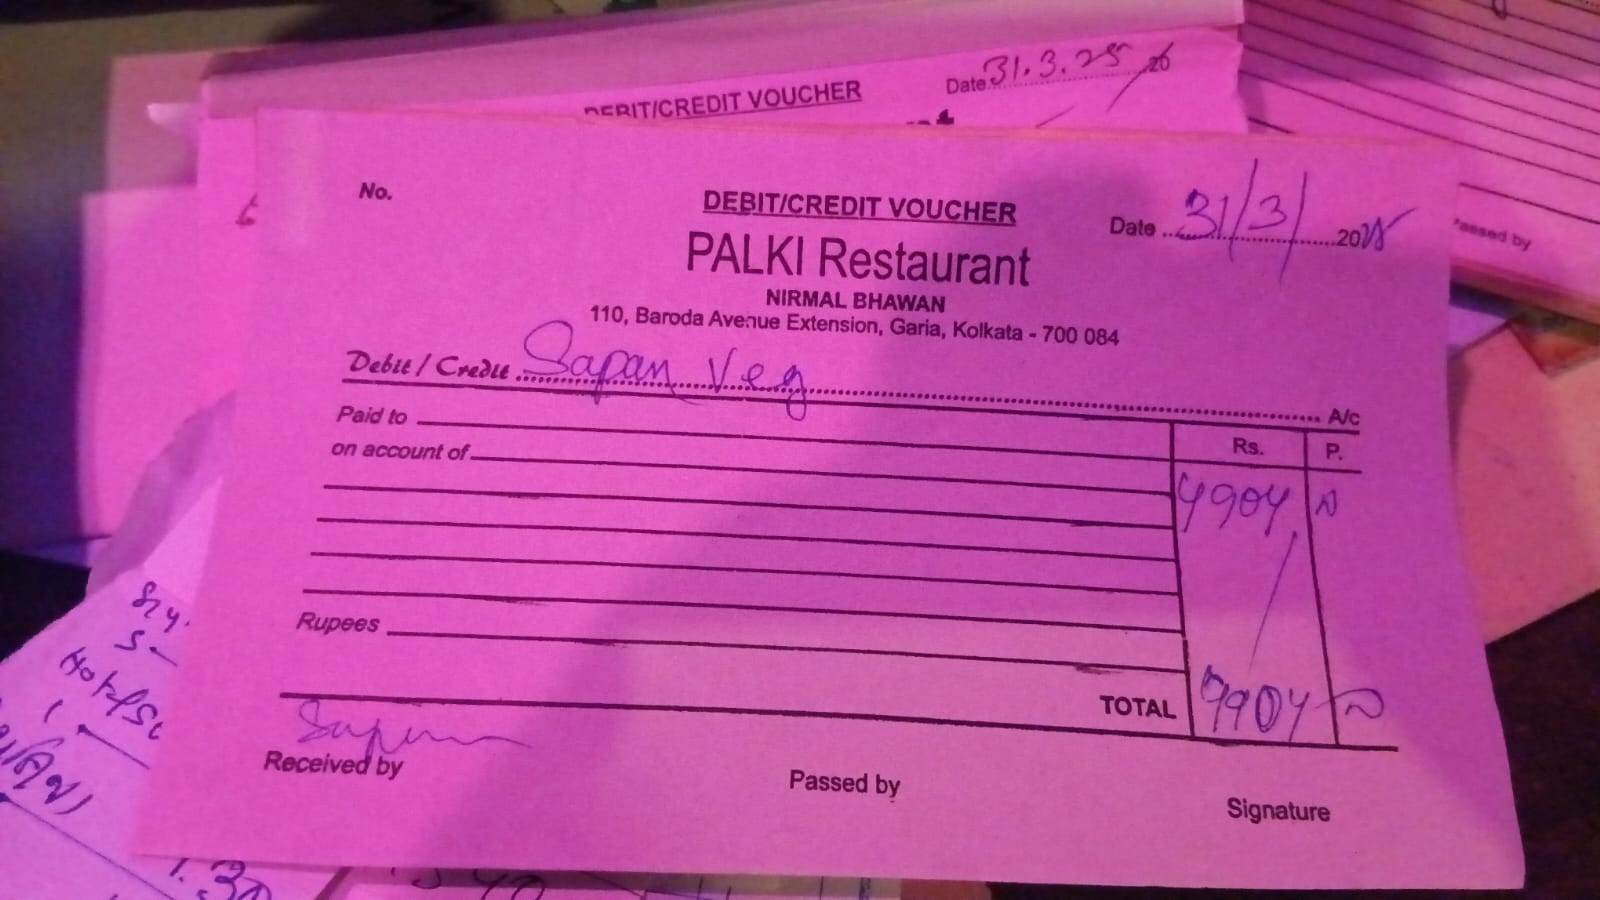 DEBIT/CREDIT VOUCHER
Date 31.3.25
No.
DEBIT/CREDIT VOUCHER
Date 31/3/2025
PALKI Restaurant
NIRMAL BHAWAN
110, Baroda Avenue Extension, Garia, Kolkata - 700 084
Debit / Credit Sapan Veg A/c
Paid to
Rs. P.
on account of
4904
Rupees
TOTAL
Sapan
Received by
Passed by
Signature
Passed by